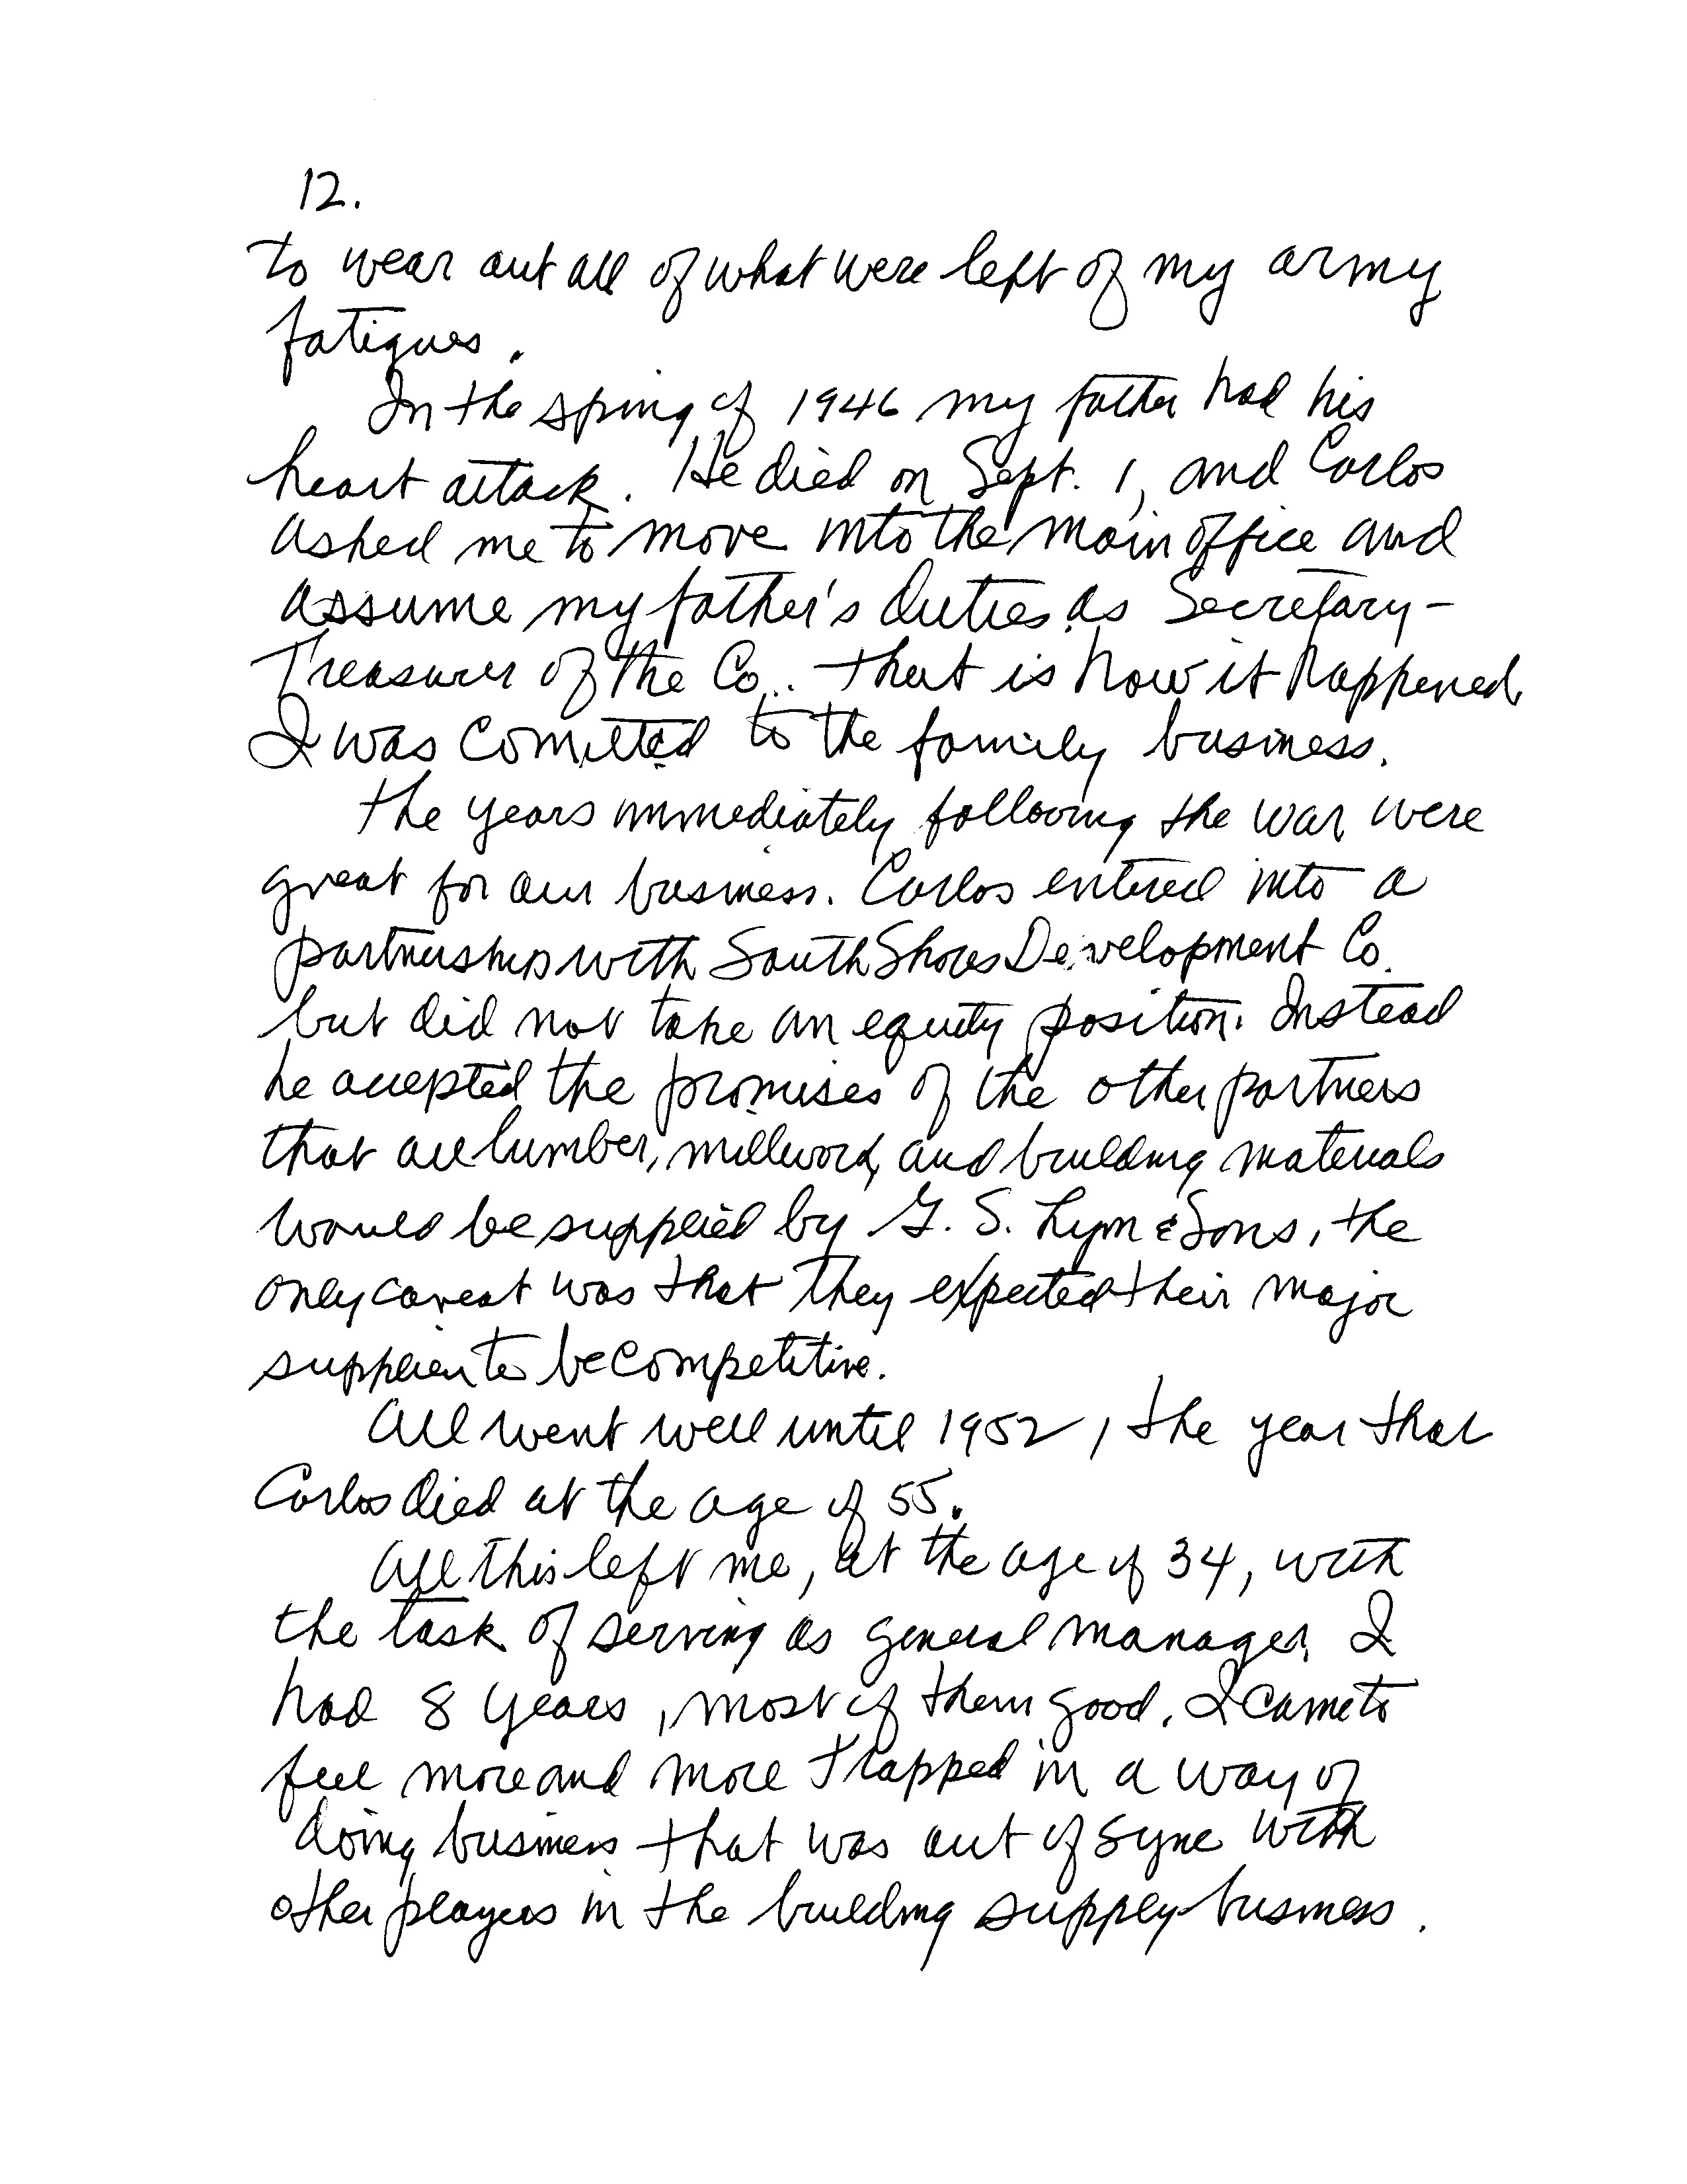 12.
to wear out all of what were left of my army
fatigues.
In the spring of 1946 my father had his
heart attack. He died on Sept. 1, and Carlos
asked me to move into the main office and
assume my father's duties as Secretary-
Treasurer of the Co.. That is how it happened,
I was comitted to the family business.
The years immediately following the war were
great for our business. Carlos entered into a
partnership with South Shores Development Co.
but did not take an equity position. Instead
he accepted the promises of the other partners
that all lumber, millwork, and building materials
would be supplied by G. S. & Sons, the
only caveat was that they expected their major
supplier to be competitive.
All went well until 1952, the year that
Carlos died at the age of 55.
All this left me, at the age of 34, with
the task of serving as general manager. I
had 8 years, most of them good. I came to
feel more and more trapped in a way of
doing business that was out of sync with
other players in the building supply business.